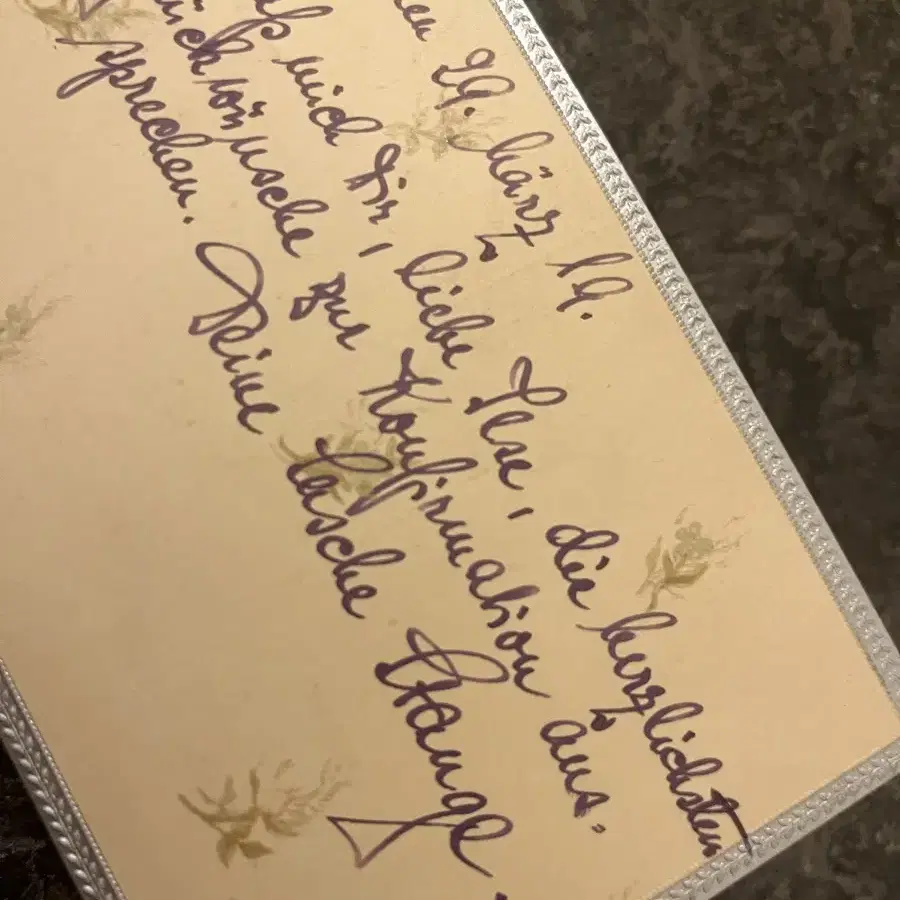 en 29. März 19.
aß mich Dir, liebe Ilse, die herzlichsten
ückwünsche zur Konfirmation aus-
sprechen. Deine Stange.